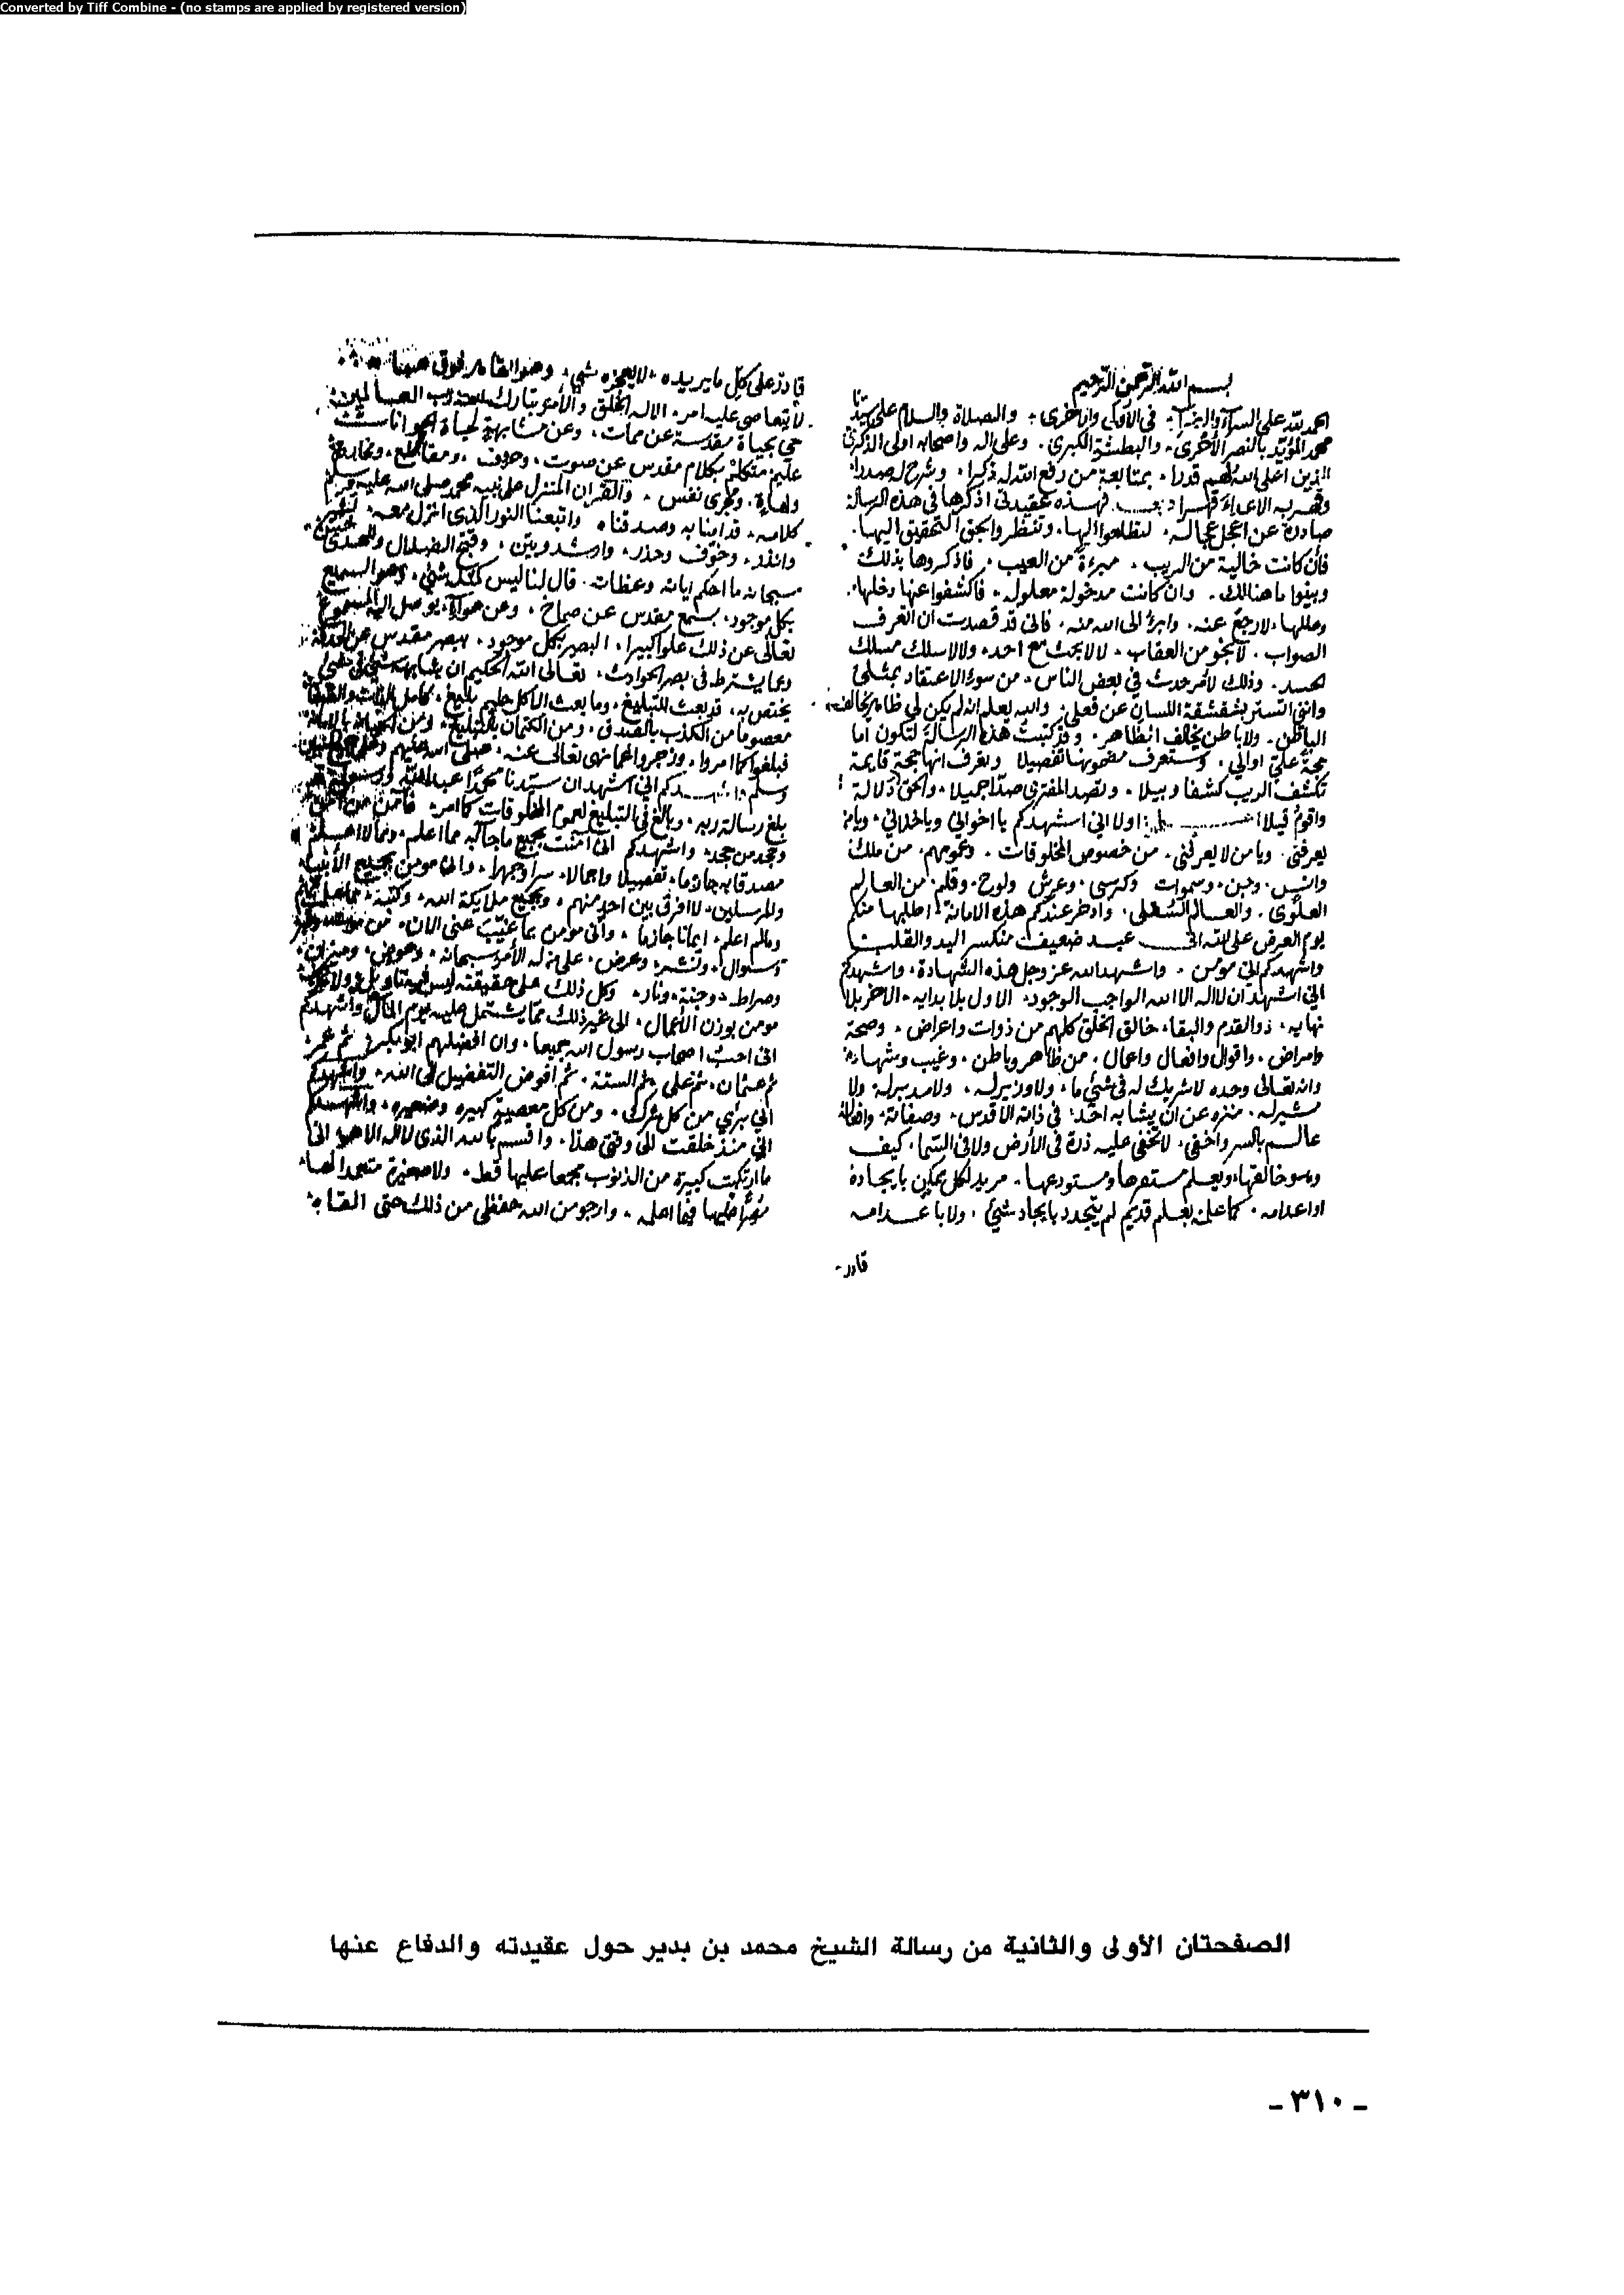 Converted by Tiff Combine - (no stamps are applied by registered version)
بسم الله الرحمن الرحيم
الحمد لله على السرآء والضرآء في الأولى والاخرى والصلاة والسلام على سيدنا
محمد المؤيد بالنصر الأحرى والبطشة الكبرى وعلى اله واصحابه اولى الذكرى
الذين اعلى الله لهم قدرا بمتابعة من رفع الله له ذكرا وشرح له صدرا
وقهر به الاعداء قهرا فهذه عقيدتى اذكرها في هذه الرسالة
صادرة عن اعجل عجالة لتطلعوا اليها وتنظروا بحق التحقيق اليها
فأن كانت خالية من الريب مبرءة من العيب فاذكروها بذلك
وبينوا ما هنالك وان كانت مدخولة معلولة فاكشفوا عنها دخلها
وعللها لارجع عنه وابرئ الى الله منه فانى قد قصدت ان اعرف
الصواب لأنجو من العقاب لا لابحث مع احد ولا لاسلك مسلك
الحسد وذلك لأمر حدث في بعض الناس من سوء الاعتقاد بمثلى
وانى اتستر بشقشقة اللسان عن فعلى والله يعلم انه لم يكن لي ظاهر يخالف
الباطن ولا باطن يخالف الظاهر وقد كتبت هذه الرسالة لتكون اما
حجة علي او لي وستعرف مضمونها تفصيلا وتعرف انها حجة قايمة
تكشف الريب كشفا وبيلا وتصد المفترى صدا جميلا والحق دلالة
واقوم قيلا اولا اني اشهدكم يا اخواني ويا خلاني ويا من
يعرفنى ويا من لا يعرفني من خصوص المخلوقات وعمومهم من ملك
وانس وجن وسموات وكرسى وعرش ولوح وقلم من العالم
العلوي والعالم السفلى وادخر عندكم هذه الامانة اطلبها منكم
يوم العرض على الله انى عبد ضعيف منكسر اليد والقلب
واشهدكم اني مومن واشهد الله عز وجل هذه الشهادة واشهدكم
اني اشهد ان لا اله الا الله الواجب الوجود الاول بلا بدايه الاخر بلا
نهايه ذو القدم والبقاء خالق الخلق كلهم من ذوات واعراض وصحة
وامراض واقوال وافعال واعمال من ظاهر وباطن وغيب وشهادة
وانه تعالى وحده لا شريك له في شئ ما ولا وزير له ولا مدبر له ولا
مشير له منزه عن ان يشابه احد في ذاته الأقدس وصفاته وافعاله
عالم بالسر واخفى لا تخفى عليه ذرة في الأرض ولا في السما كيف
وهو خالقها ويعلم مستقرها ومستودعها مريد لكل ممكن بايجاده
او اعدامه كما علمه بعلم قديم لم يتجدد بايجاد شئ ولا باعدامه
قادر
قادر على كل ما يريده لا يعجزه شئ وهو القاهر فوق
لا يتعاصى عليه امر الا له الخلق والأمر تبارك الله رب العالمين
حي بحياة مقدسة عن ممات وعن مشابهة لحياة الحيوانات
عليم متكلم بكلام مقدس عن صوت وحروف ومقاطع ومخارج
ولهاة ومجرى نفس والقران المنزل على نبيه محمد صلى الله عليه وسلم
كلامه قد امنا به وصدقناه واتبعنا النور الذى انزل معه
وانذر وخوف وحذر وارشد وبين وقبح الضلال
سبحانه ما احكم اياته وعظاته قال لنا ليس كمثله شئ وهو السميع
بكل موجود بسمع مقدس عن صماخ وعن هوآء يوصل اليه المسموع
تعالى عن ذلك علوا كبيرا البصير بكل موجود ببصر مقدس عن
وعما يشترط في بصر الحوادث تعالى الله الحكيم ان يشابهه شئ
يختص به قد بعث للتبليغ وما بعث الا كل حليم بليغ كامل الذات
معصوما من الكذب بالصدق ومن الكتمان بالتبليغ ومن الخيانة بالامانة
فبلغوا كما امروا وزجروا عما نهى تعالى عنه صلى الله عليهم
وسلم اشهدكم اني اشهد ان سيدنا محمدا عبد الله ورسوله
بلغ رسالة ربه وبالغ في التبليغ لعموم المخلوقات كما امر فآمن من آمن
وجحد من جحد واشهدكم انى آمنت بجميع ما جآء به مما اعلم ومما لا اعلم
مصدقا به جازما تفصيلا واجمالا سرا وجهرا وانا مومن بجميع الأنبياء
والمرسلين لا افرق بين احد منهم وبجميع ملايكة الله وكتبه
ومالم اعلم ايمانا جازما واني مومن بما غيب عنى الان من
وسوال ونشر وعرض على من له الأمر سبحانه وحوض وميزان
وصراط وجنة ونار وكل ذلك على حقيقته ليس بتاويل
مومن بوزن الأعمال الى غير ذلك مما يشتمل عليه يوم المآل واشهدكم
انى احب اصحاب رسول الله جميعا وان افضلهم ابو بكر ثم عمر
ثم عثمان ثم على ثم الستة ثم افوض التفضيل الى الله واشهدكم
اني برئ من كل شرك ومن كل معصية كبيره وصغيره واشهدكم
اني منذ خلقت الى وقتى هذا واقسم بالله الذى لا اله الا هو انى
ما ارتكبت كبيرة من الذنوب مجمعا عليها قط ولا صغيرة متعمدا لها
فيما اعلم وارجو من الله حفظى من ذلك حتى القاه
الصفحتان الأولى والثانية من رسالة الشيخ محمد بن بدير حول عقيدته والدفاع عنها
- ٣١٠ -